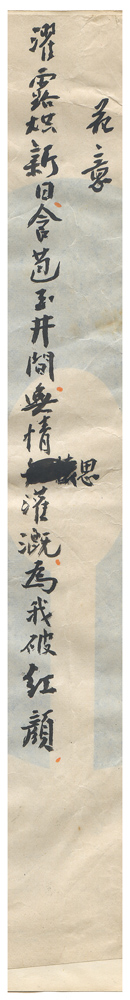 花章
濯露烘新日含苞玉井間無情思灌溉為我破紅顏